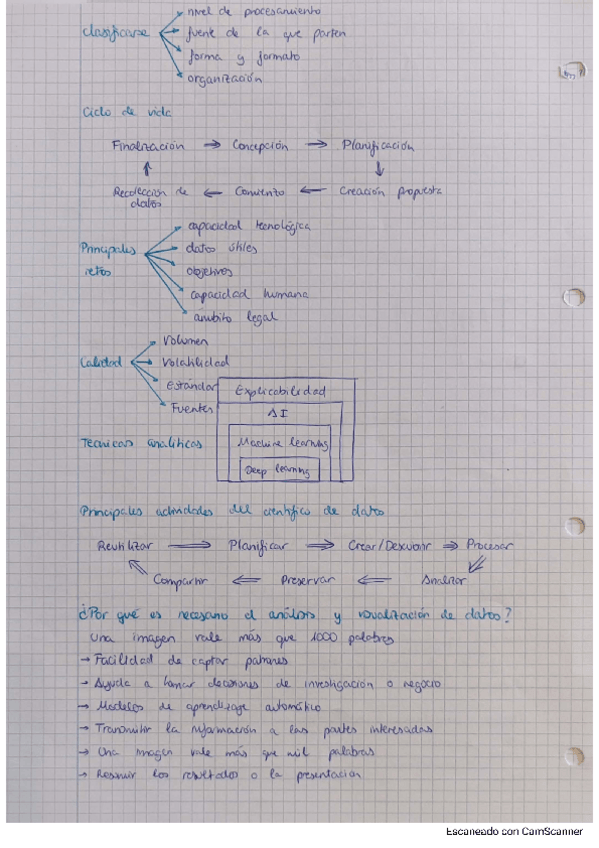 nivel de procesamiento
clasificarse
fuente de la que parten
forma y formato
organización
Ciclo de vida
Finalización → Concepción → Planificación
Recolección de datos ← Comienzo ← Creación propuesta
capacidad tecnológica
Principales retos
datos útiles
objetivos
capacidad humana
ámbito legal
Volumen
Calidad
Volatilidad
Estándar
Fuentes
Explicabilidad
AI
Técnicas analíticas
Machine learning
Deep learning
Principales actividades del científico de datos
Reutilizar → Planificar → Crear/Descubrir → Procesar
Compartir ← Preservar ← Analizar
¿Por qué es necesario el análisis y visualización de datos?
Una imagen vale más que 1000 palabras
→ Facilidad de captar patrones
→ Ayuda a tomar decisiones de investigación o negocio
→ Modelos de aprendizaje automático
→ Transmitir la información a las partes interesadas
→ Una imagen vale más que mil palabras
→ Resumir los resultados o la presentación
Escaneado con CamScanner